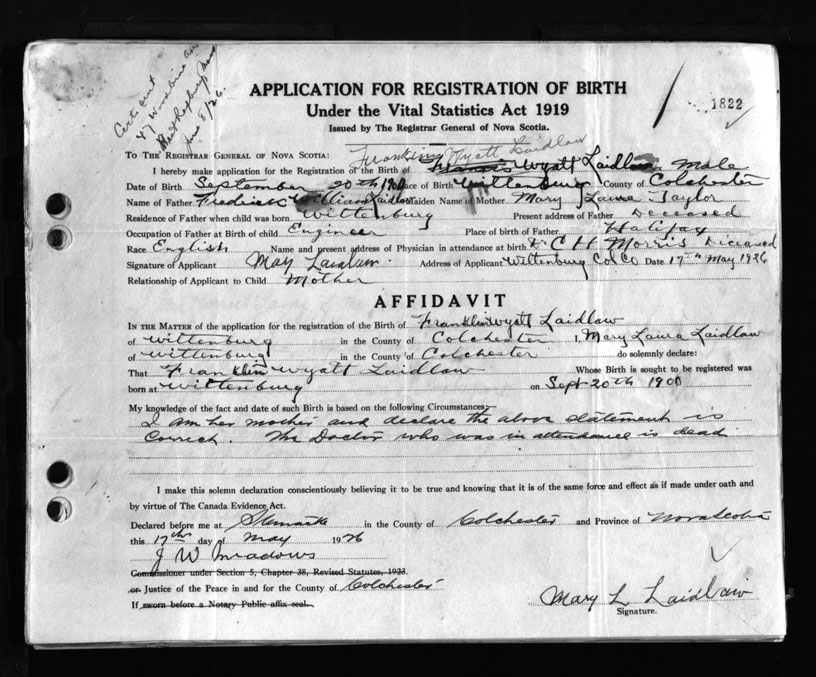 Certs out
47 Woodbine Ave
West Roxbury Mass
June 8/26.
APPLICATION FOR REGISTRATION OF BIRTH
Under the Vital Statistics Act 1919
Issued by The Registrar General of Nova Scotia.
1822
TO THE REGISTRAR GENERAL OF NOVA SCOTIA: Franklin Wyatt Laidlaw
I hereby make application for the Registration of the Birth of Francis Wyatt Laidlaw Male
Date of Birth September 20th 1900 Place of Birth Wittenburg County of Colchester
Name of Father Fredrick William Laidlaw Maiden Name of Mother Mary Laura Taylor
Residence of Father when child was born Wittenburg Present address of Father Deceased
Occupation of Father at Birth of child Engineer Place of birth of Father Halifax
Race English Name and present address of Physician in attendance at birth Dr C H Morris Diceased
Signature of Applicant May Laidlaw. Address of Applicant Wittenburg Col Co Date 17th May 1926
Relationship of Applicant to Child Mother
AFFIDAVIT
IN THE MATTER of the application for the registration of the Birth of Franklin Wyatt Laidlaw
of Wittenburg in the County of Colchester I, Mary Laura Laidlaw
of Wittenburg in the County of Colchester do solemnly declare:
That Franklin Wyatt Laidlaw Whose Birth is sought to be registered was
born at Wittenburg on Sept 20th 1900
My knowledge of the fact and date of such Birth is based on the following Circumstances:
I am her mother and declare the above statement is
Correct. The Doctor who was in attendance is dead
I make this solemn declaration conscientiously believing it to be true and knowing that it is of the same force and effect as if made under oath and
by virtue of The Canada Evidence Act.
Declared before me at in the County of Colchester and Province of Nova Scotia
this 17th day of May 1926
J W Meadows
Commissioner under Section 5, Chapter 38, Revised Statutes, 1923.
or Justice of the Peace in and for the County of Colchester
If sworn before a Notary Public affix seal.
Mary L Laidlaw
Signature.